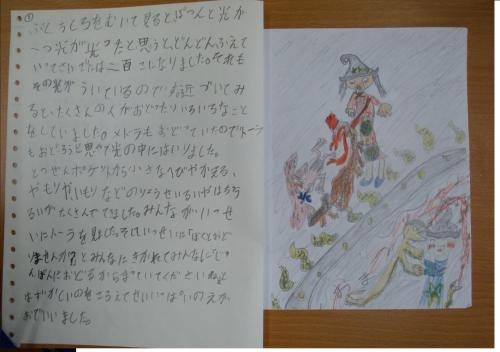 ①
ふと うしろをむいて見るとぽつんと光が
一つ光が光ったと思うと、どんどんふえて
いってさいごには二百こになりました。それも
その光が ういているので 近づいてみ
ると、たくさんの人がおどったりいろいろなこと
をしていました。メトラもおどっていたのでトーラ
もおどろうと思って光の中にはいりました。
とつぜんポケットから小さなへびやかえる、
やもりやいもりなどのりょうせいるいやはちゅう
るいがたくさんでてきました。みんながいっせ
いにトーラを見ました。そしていっせいに「ぼくとおど
りませんか?」とみんなにきかれてみんなに「じゅ
んばんにおどるからまっていてください」と
はずかしいのをこらえてせいいっぱいのえが
おでいいました。